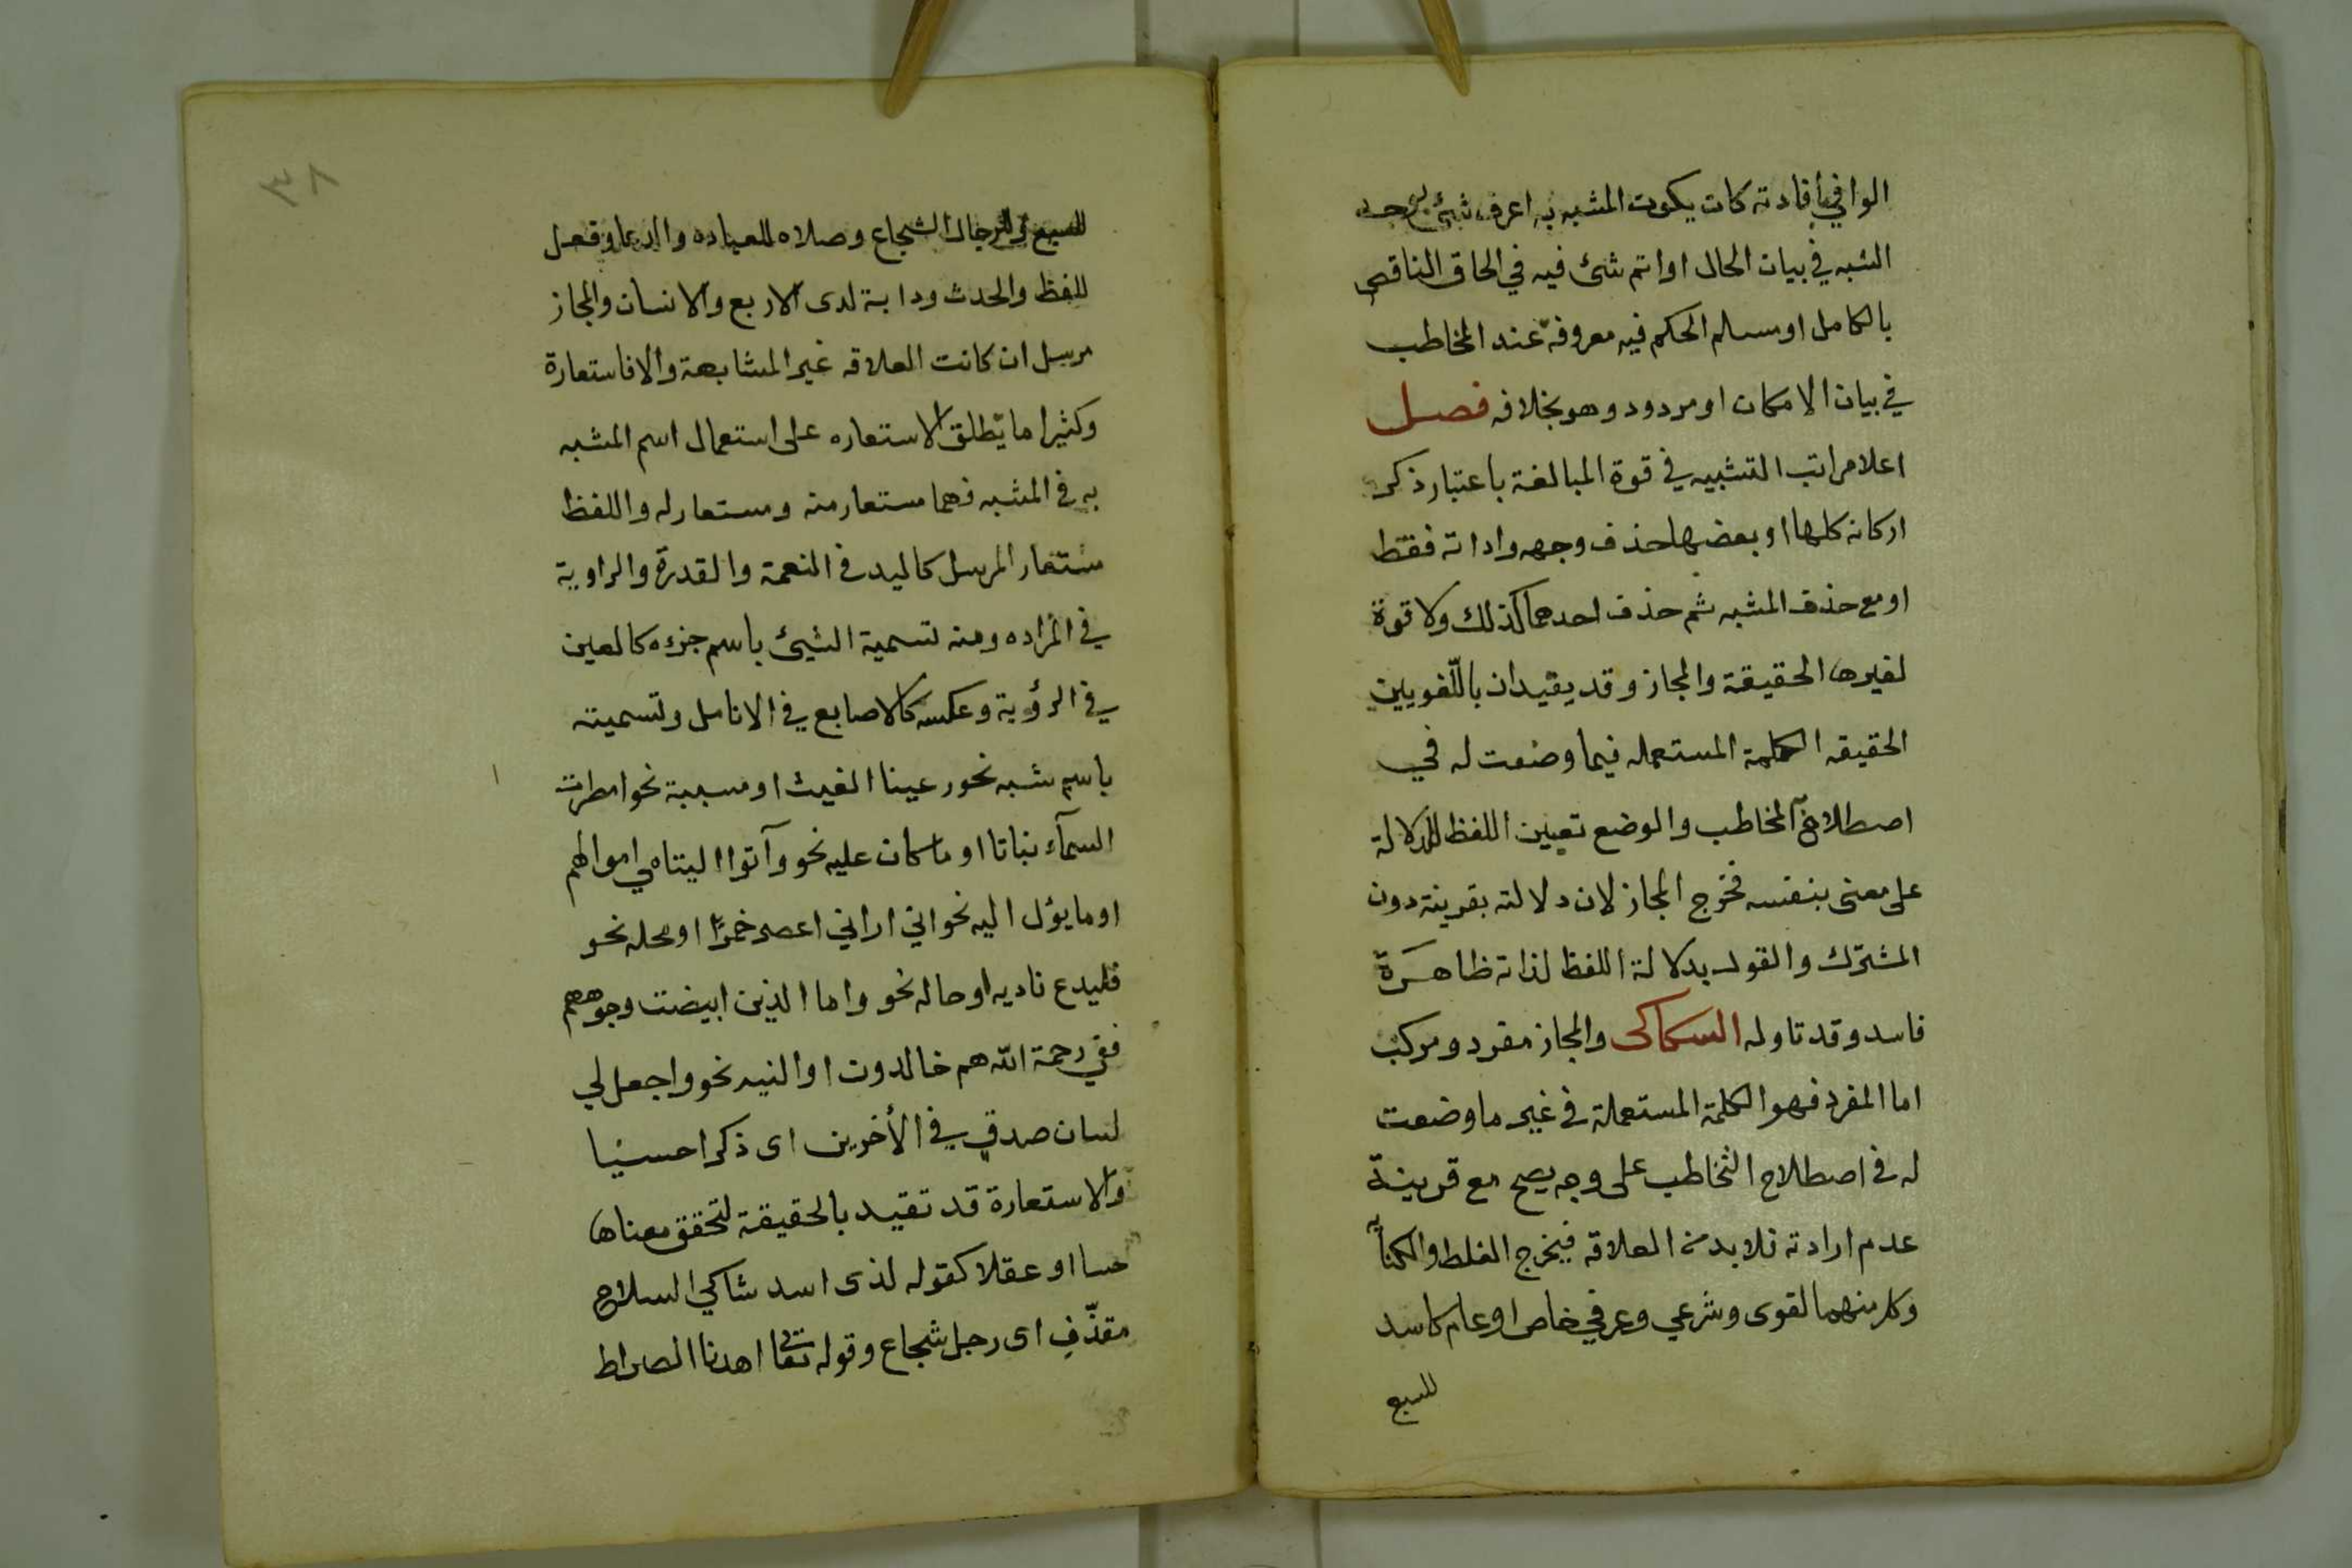 الوافي بأفادته كان يكون المشبه به اعرف شئ بوجه
الشبه في بيان الحال او اتم شئ فيه في الحاق الناقص
بالكامل او مسلم الحكم فيه معروفة عند المخاطب
في بيان الامكان او مردود وهو بخلافه فصل
اعلا مراتب التشبيه في قوة المبالغة باعتبار ذكر
اركانه كلها او بعضها حذف وجهه واداته فقط
او مع حذف المشبه ثم حذف احدهما كذلك ولا قوة
لغيرها الحقيقة والمجاز وقد يقيدان باللّغويين
الحقيقه الكلمة المستعمله فيما وضعت له في
اصطلاح المخاطب والوضع تعيين اللفظ للدلالة
على معنى بنفسه فخرج المجاز لان دلالته بقرينة دون
المشترك والقول بدلالة اللفظ لذاته ظاهرَة
فاسد وقد تاوله السكاكى والمجاز مفرد ومركب
اما المفرد فهو الكلمة المستعملة في غير ما وضعت
له في اصطلاح التخاطب على وجه يصح مع قرينة
عدم ارادته فلا بد من العلاقه فيخرج الغلط والكناية
وكل منهما لغوى وشرعي وعرفي خاص او عام كاسد
للسبع
٣٨
للسبع والرجال الشجاع وصلاه للعباده والدعا وفعل
للفظ والحدث ودابة لدى الاربع والانسان والمجاز
مرسل ان كانت العلاقه غير المشابهة والا فاستعارة
وكثيرا ما يطلق الاستعاره على استعمال اسم المشبه
به في المشبه فهما مستعار منه ومستعار له واللفظ
مستعار المرسل كاليد في النعمة والقدرة والراوية
في المزاده ومنه تسمية الشيئ باسم جزءه كالعين
في الرؤية وعكسه كالاصابع في الانامل وتسميته
باسم سببه نحو رعينا الغيث او مسببة نحو امطرت
السمآء نباتا او ما كان عليه نحو وآتوا اليتامي اموالهم
او ما يؤل اليه نحو اني اراني اعصر خمرًا او محله نحو
فليدع ناديه او حاله نحو واما الذين ابيضت وجوههم
ففي رحمة الله هم خالدون او اليه نحو واجعل لي
لسان صدق في الأخرين اى ذكرا حسنا
والاستعارة قد تقيد بالحقيقة لتحقق معناها
حسا او عقلا كقوله لذى اسد شاكي السلاح
مقذّفِ اى رجل شجاع وقوله تعا اهدنا الصراط